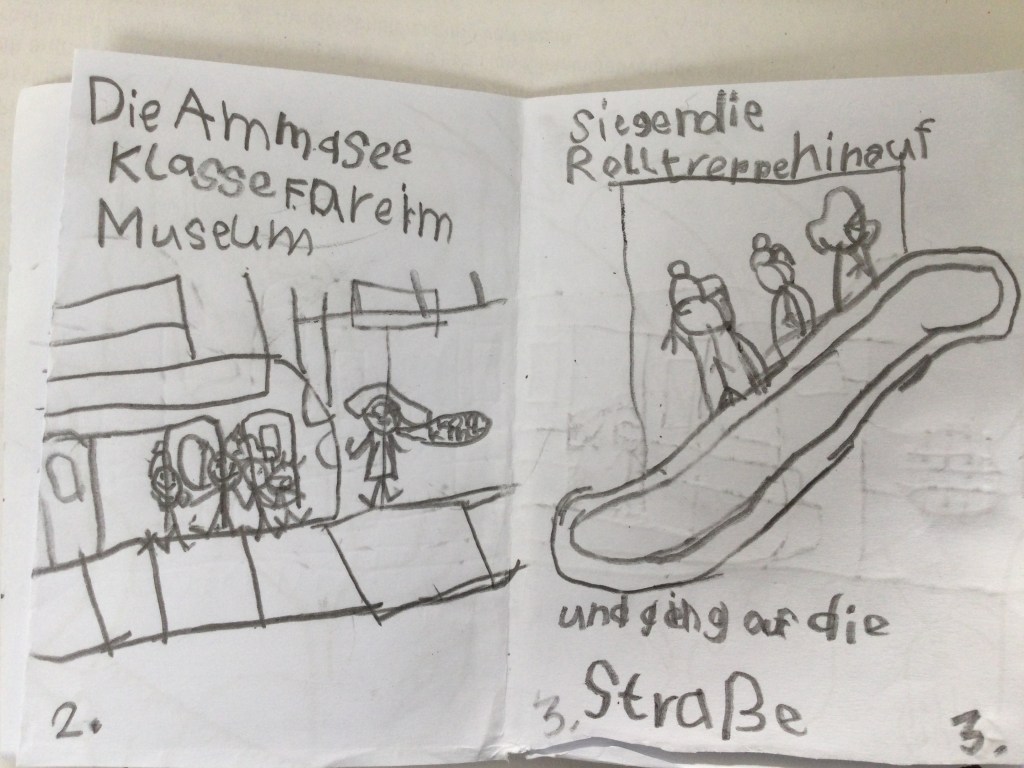 Die Ammasee
Klasse Fareim
Museum
2.
siegendie
Rolltreppehinauf
und ging auf die
3. Straße
3.